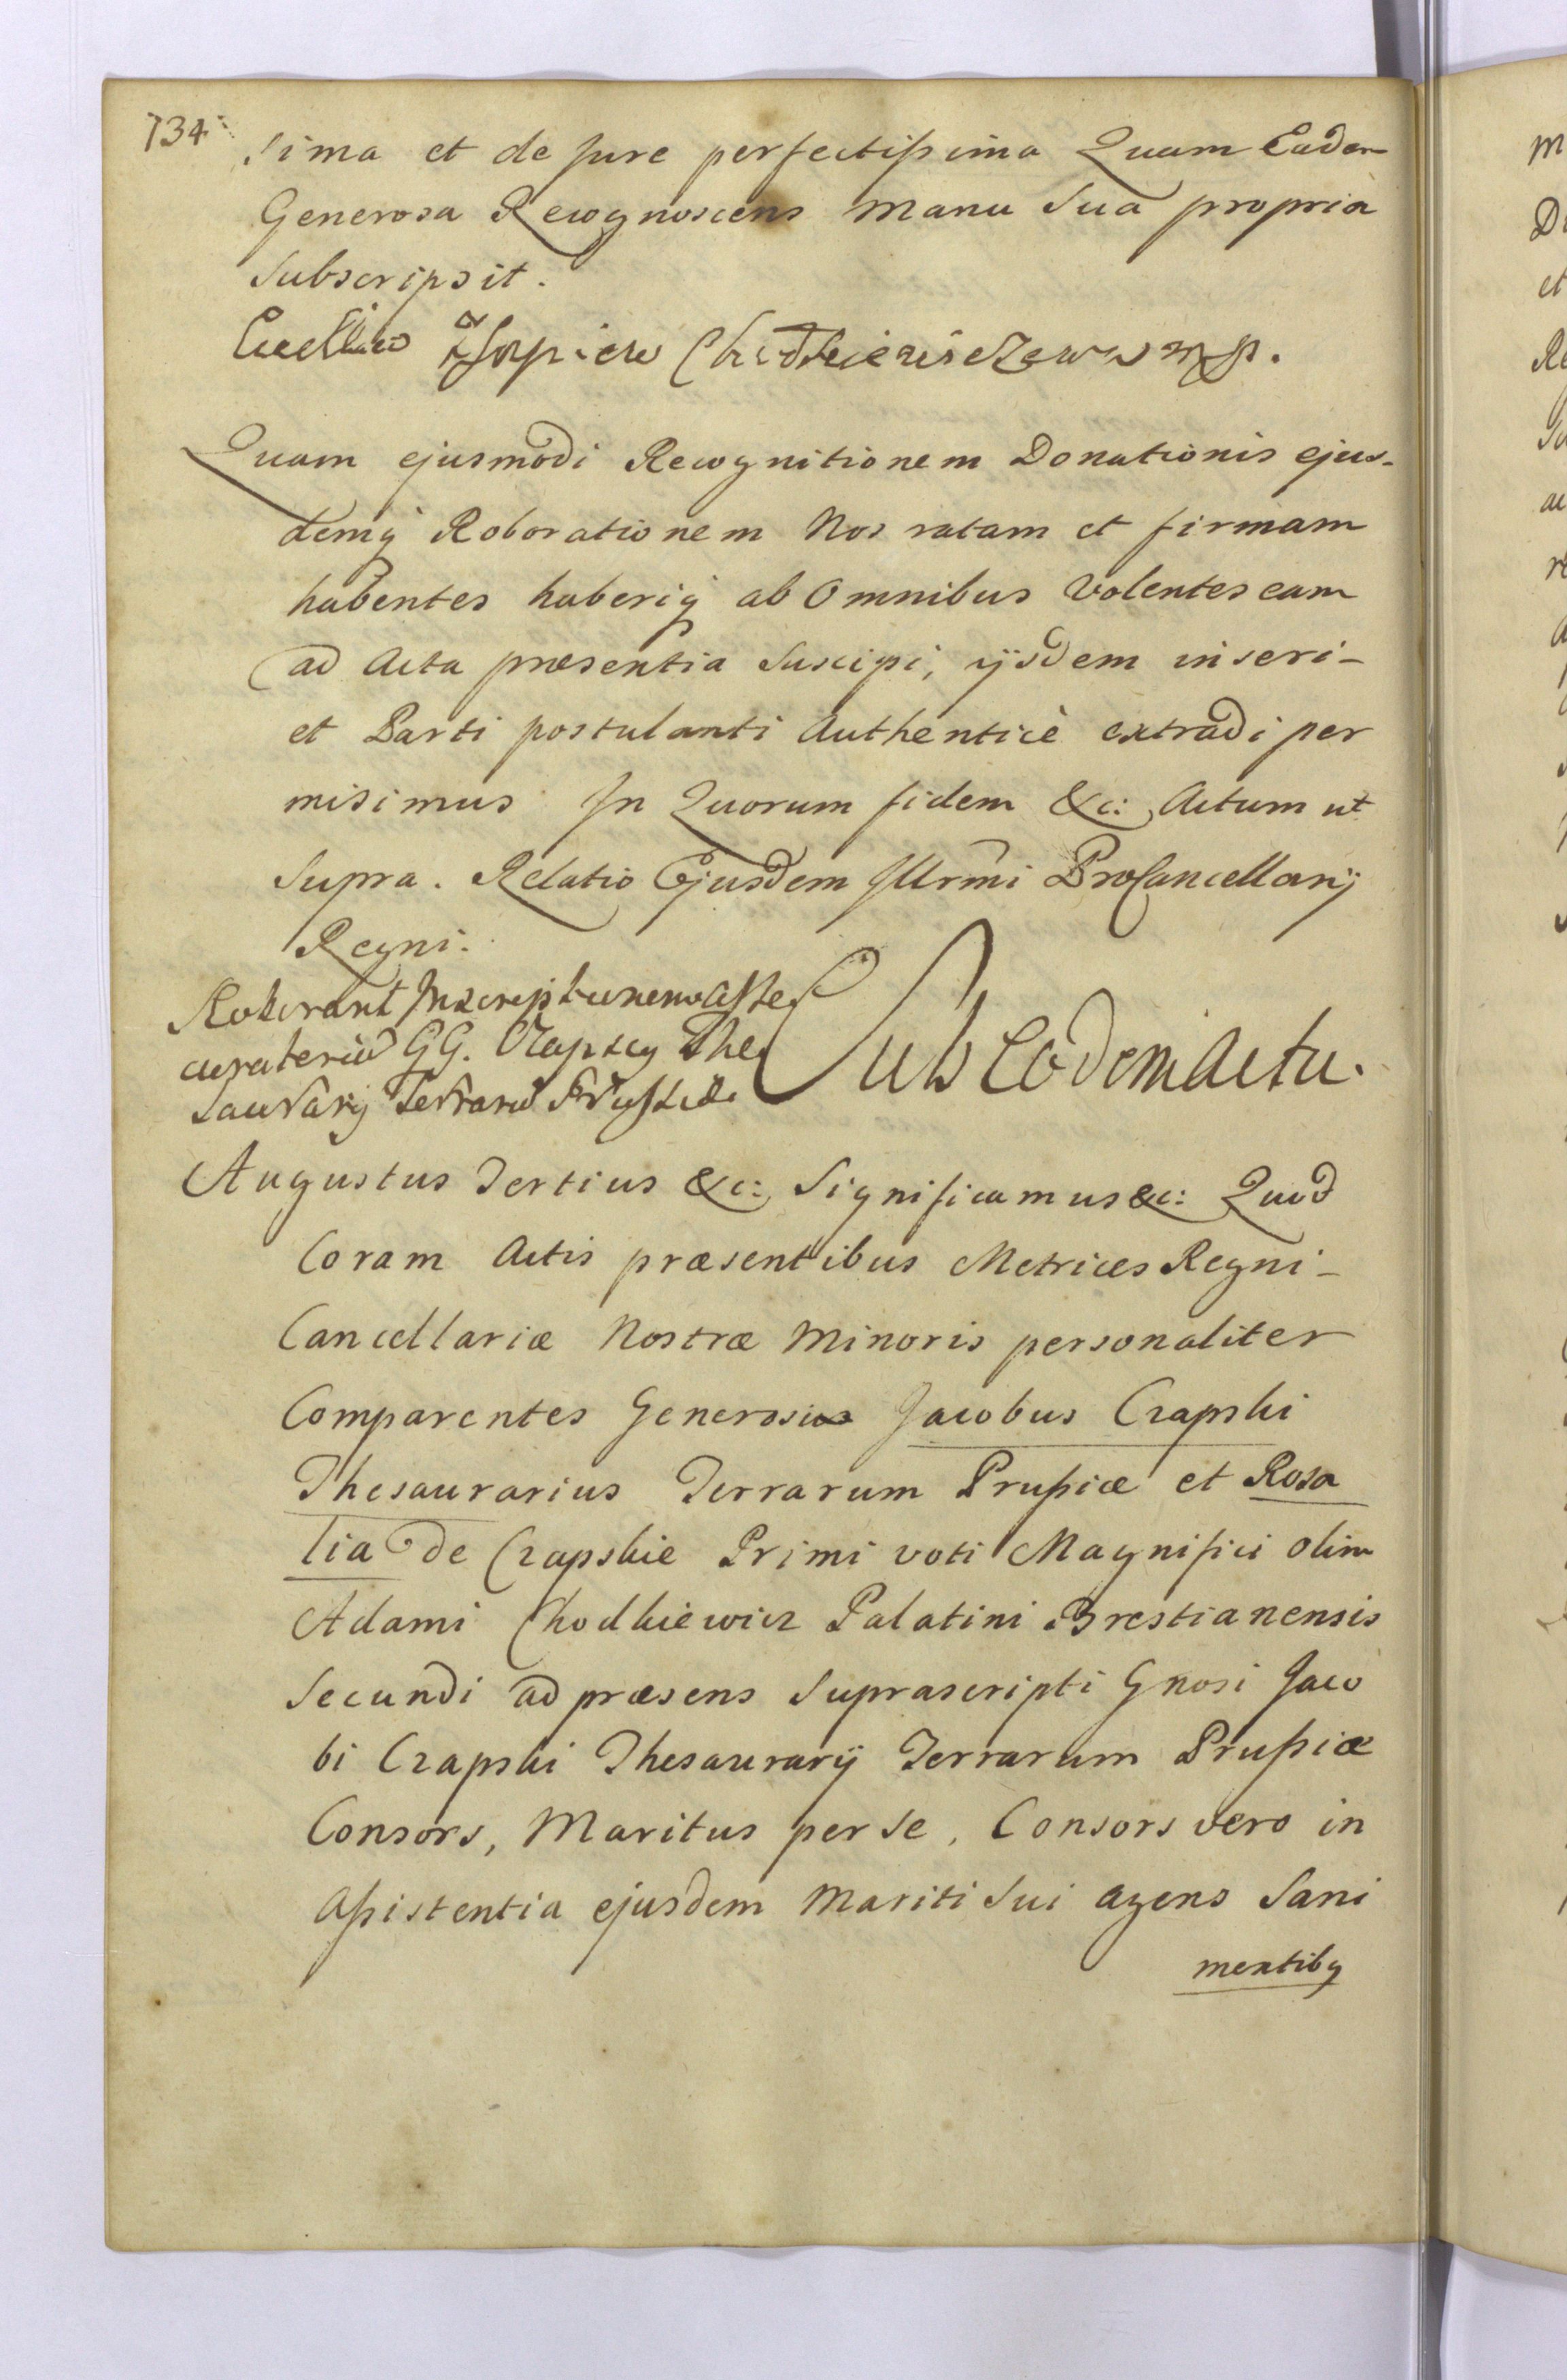 734
sima et de Jure perfectissima Quam Eadem
Generosa Recognoscens manu Sua propria
Subscripsit.
z Sapiehow Chodkiewiczowa mp.
Quam ejusmodi Recognitionem Donationis ejus-
demq̃ Roborationem Nos ratam et firmam
habentes haberiq̃ ab Omnibus volentes eam
ad Acta præsentia Suscipi, ijsdem inseri-
et Parti postulanti Authenticè extradi per
misimus In Quorum fidem &c: Actum ut
Supra. Relatio Ejusdem Jllrmi ProCancellarij
Regni.
Roborant Inscriptionem
GG. Czapscy The
saurarij Terrarũ Prussiæ
Sub Eodem Actu.
Augustus Tertius &c: Significamus &c: Quod
Coram Actis præsentibus Metrices Regni-
Cancellariæ Nostræ Minoris personaliter
Comparentes Generosus Jacobus Czapski
Thesaurarius Terrarum Prussiæ et Rosa
lia de Czapskie Primi voti Magnifici olim
Adami Chodkiewicz Palatini Brestianensis
Secundi ad præsens Suprascripti Gnosi Jaco
bi Czapski Thesaurarij Terrarum Prussiæ
Consors, Maritus per se, Consors vero in
Assistentia ejusdem Mariti Sui agens Sani
mentibq